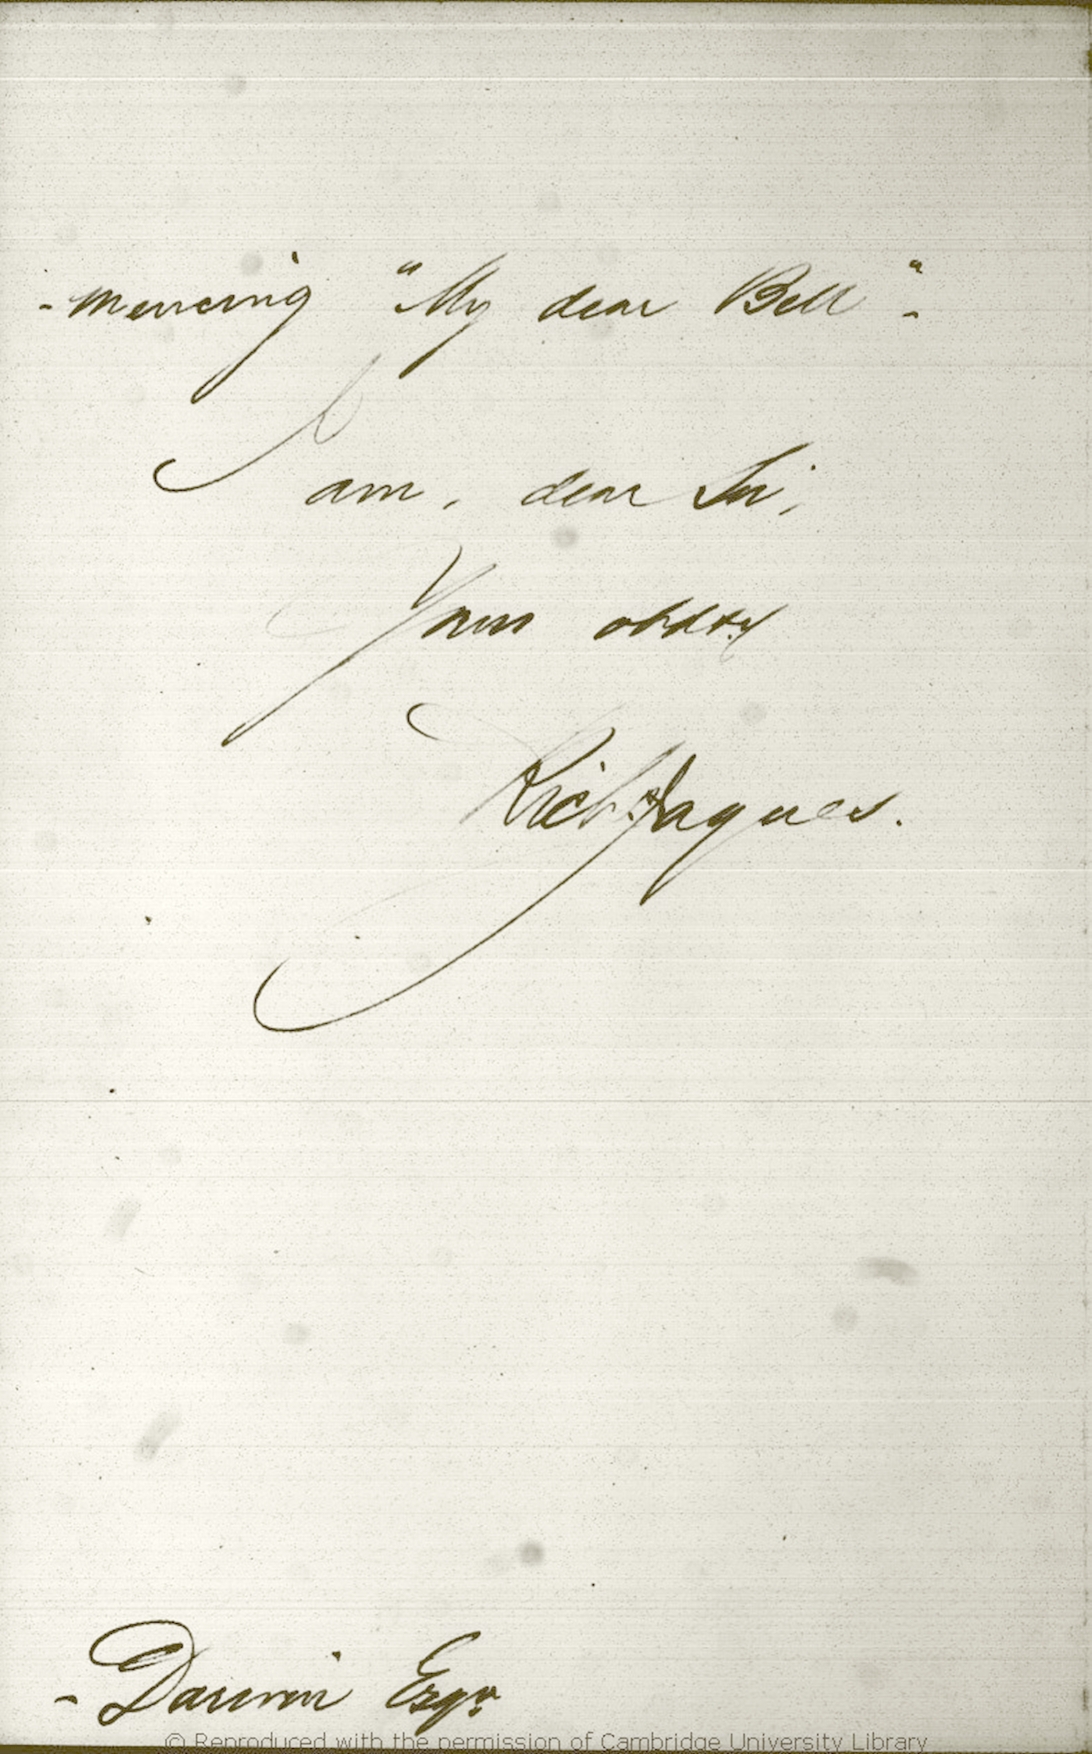 -mencing "My dear Bell"-
I am, dear Sir,
Yours obdtly
Rich.d Jaques.
- Darwin Esqr.
© Reproduced with the permission of Cambridge University Library